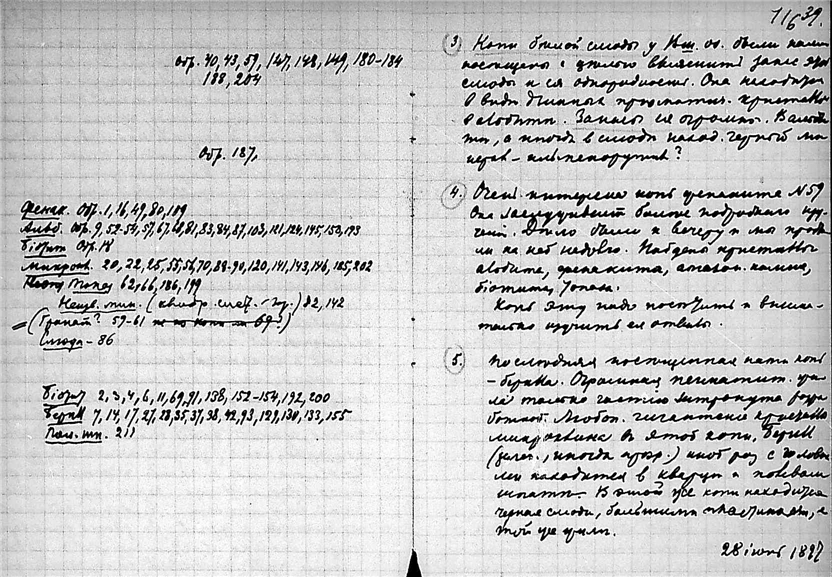 обр. 40, 43, 59, 147, 148, 149, 180-184
188, 204
Обр. 187,
Фенак. Обр. 1, 16, 49, 80, 109
Альб. Обр. 9, 52-54, 57, 67, 68, 81, 83, 84, 87, 103, 121, 124, 145, 150, 193
Біотит Обр. 18
Микрокл. 20, 22, 25, 55, 56, 70, 88-90, 120, 141, 143, 146, 185, 202
62, 66, 186, 199
Неизв. мин. 82, 142
(Гранат? 59-61
Слюда - 86
Біотит 2, 3, 4, 6, 11, 69, 91, 138, 152-154, 192, 200
Берилл 7, 14, 17, 27, 28, 35, 37, 38, 42, 93, 129, 130, 133, 155
Пол. шп. 211
116 39.
3) Копи белой слюды у Иш. оз. были нами
посещены с целью выяснить запас этой
слюды и ея однородность. Она находится
в виде длинных призматич. кристаллов
в альбите. Запасы ея огромны. В альби-
те, а иногда в слюде наход. черный ми
нерал - ильменорутил?
4. Очень интересна копь фенакита № 59
Она заслуживает более подробнаго изу
чения. Дело было к вечеру и мы пробы
ли на ней недолго. Найдены кристаллы
альбита, фенакита, амазон. камня,
біотита, топаза.
Копь эту надо посетить и внима-
тельно изучить ея отвалы.
5. Последняя посещенная нами копь
- берилла. Огромная пегматит. жи
ла только частью затронута разра
боткой. Любоп. гигантские кристаллы
микроклина в этой копи. Берилл
(зелен., иногда прозр.) иной раз с
находится в кварце и полевом
шпате. В этой же копи находится
черная слюда, большими пластинами, в
той же жиле.
28 іюня 1897